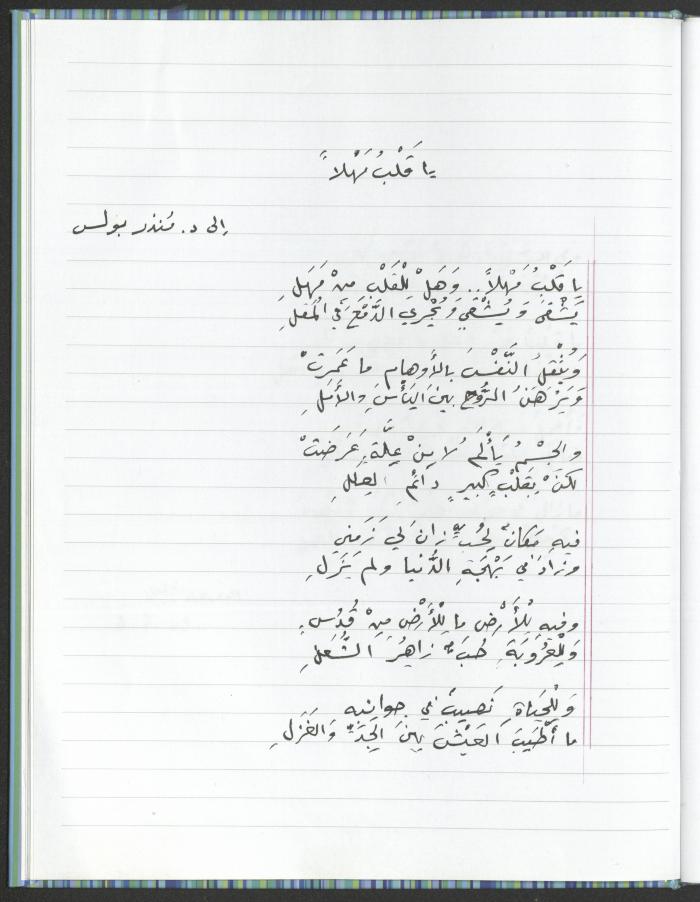 يا قَلْبُ مَهْلاً
إلى د. مُنذر بولس
يا قَلْبُ مَهْلاً.. وَهَلْ لِلْقَلْبِ مِنْ مَهَلِ
يَشْقَى وَيُشْقِي وَيُجْرِي الدَّمْعَ في الْمُقَلِ
وَيُثْقِلُ النَّفْسَ بِالأَوْهامِ ما عَمَرَتْ
وَيَرْهَنُ الرُّوحَ بينَ اليَأسِ والأَمَلِ
والجِسْمُ يَأْلَمُ لا مِنْ عِلَّةٍ عَرَضَتْ
لكنْ بِقَلْبٍ كبيرٍ دائمِ العِلَلِ
فيهِ مَكانٌ لِحُبٍّ زانَ لي زَمَني
وزادَ في بَهْجَةِ الدُّنيا ولم يَزَلِ
وفيهِ لِلأَرْضِ ما لِلأَرْضِ مِنْ قُدُسٍ
وَلِلْعُرُوبَةِ حُبٌّ زاهِرُ الشُّعَلِ
وَلِلْحَياةِ نَصِيبٌ في جوانِبِهِ
ما أَطْيَبَ العَيْشَ بينَ الجِدِّ وَالغَزَلِ